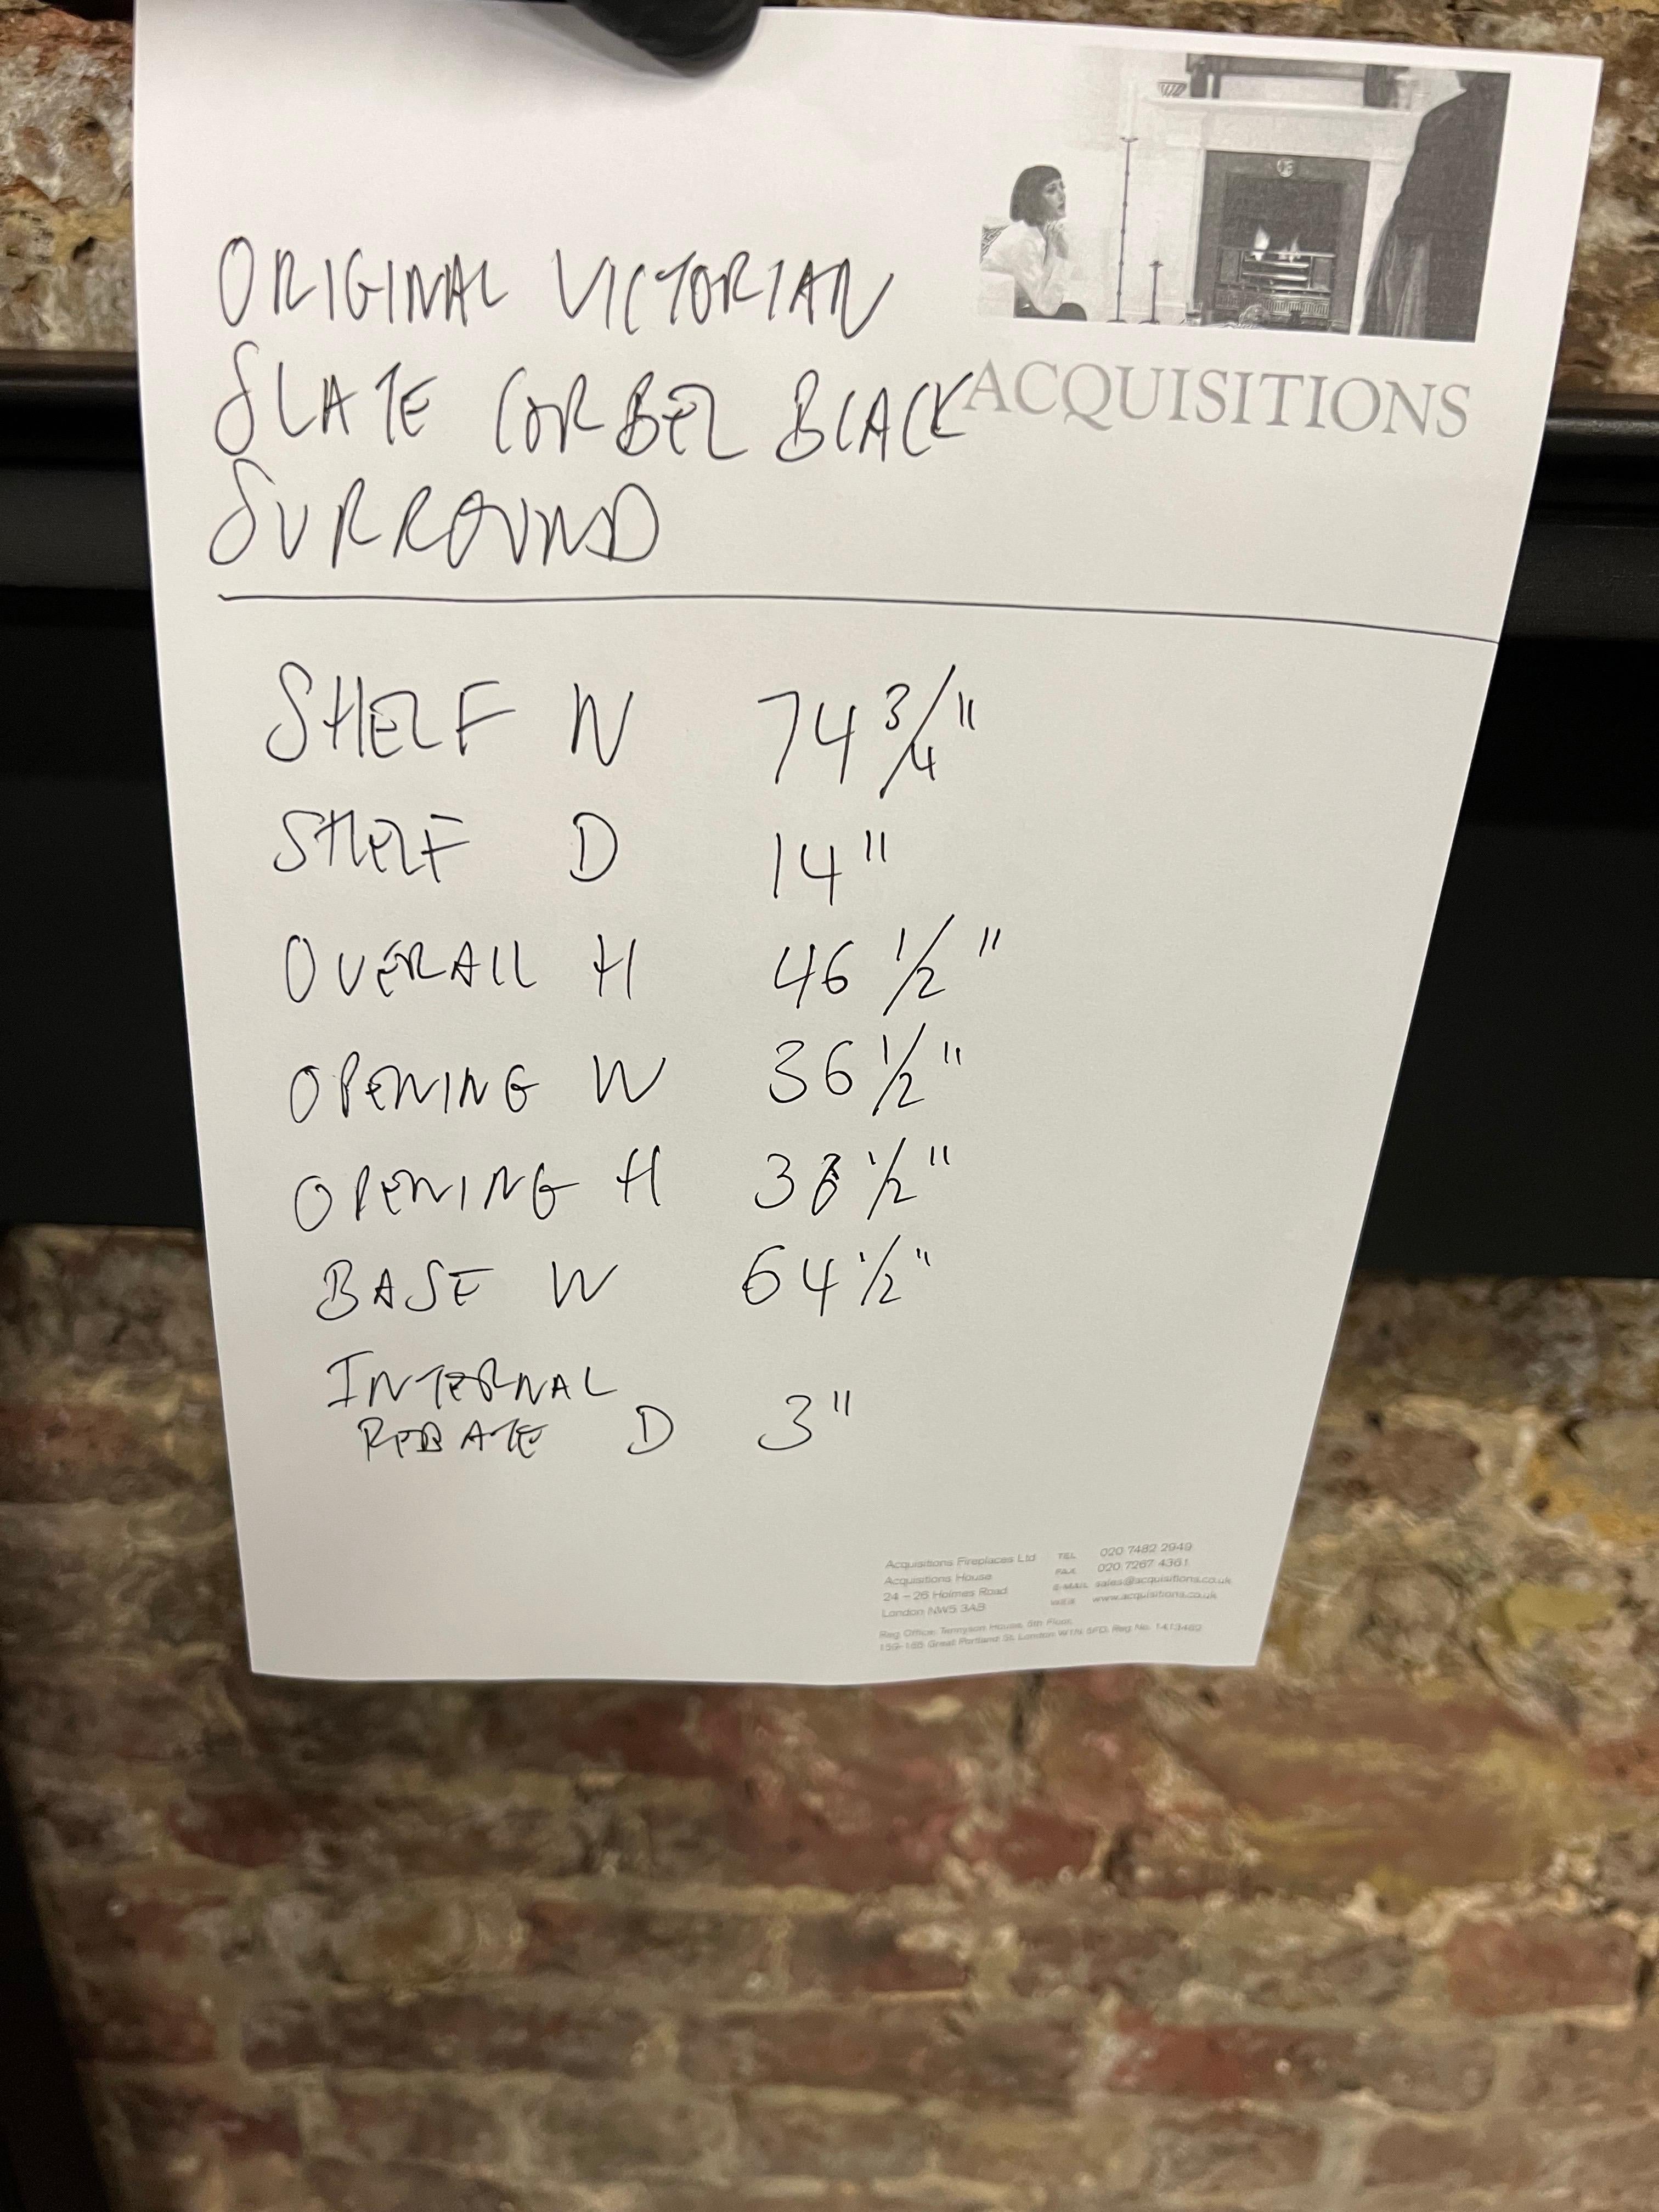 ORIGINAL VICTORIAN
SLATE CORBEL BLACK
SURROUND
ACQUISITIONS
SHELF W 74 3/4"
SHELF D 14"
OVERALL H 46 1/2"
OPENING W 36 1/2"
OPENING H 1/2"
BASE W 64 1/2"
INTERNAL
REBATE D 3"
Acquisitions Fireplaces Ltd
Acquisitions House
24 – 26 Holmes Road
London NW5 3AB
TEL 020 7482 2949
FAX 020 7267 4361
E-MAIL sales@acquisitions.co.uk
WEB www.acquisitions.co.uk
Reg. Office: Tennyson House, 5th Floor,
159-165 Great Portland St. London W1N Reg. No. 1413489